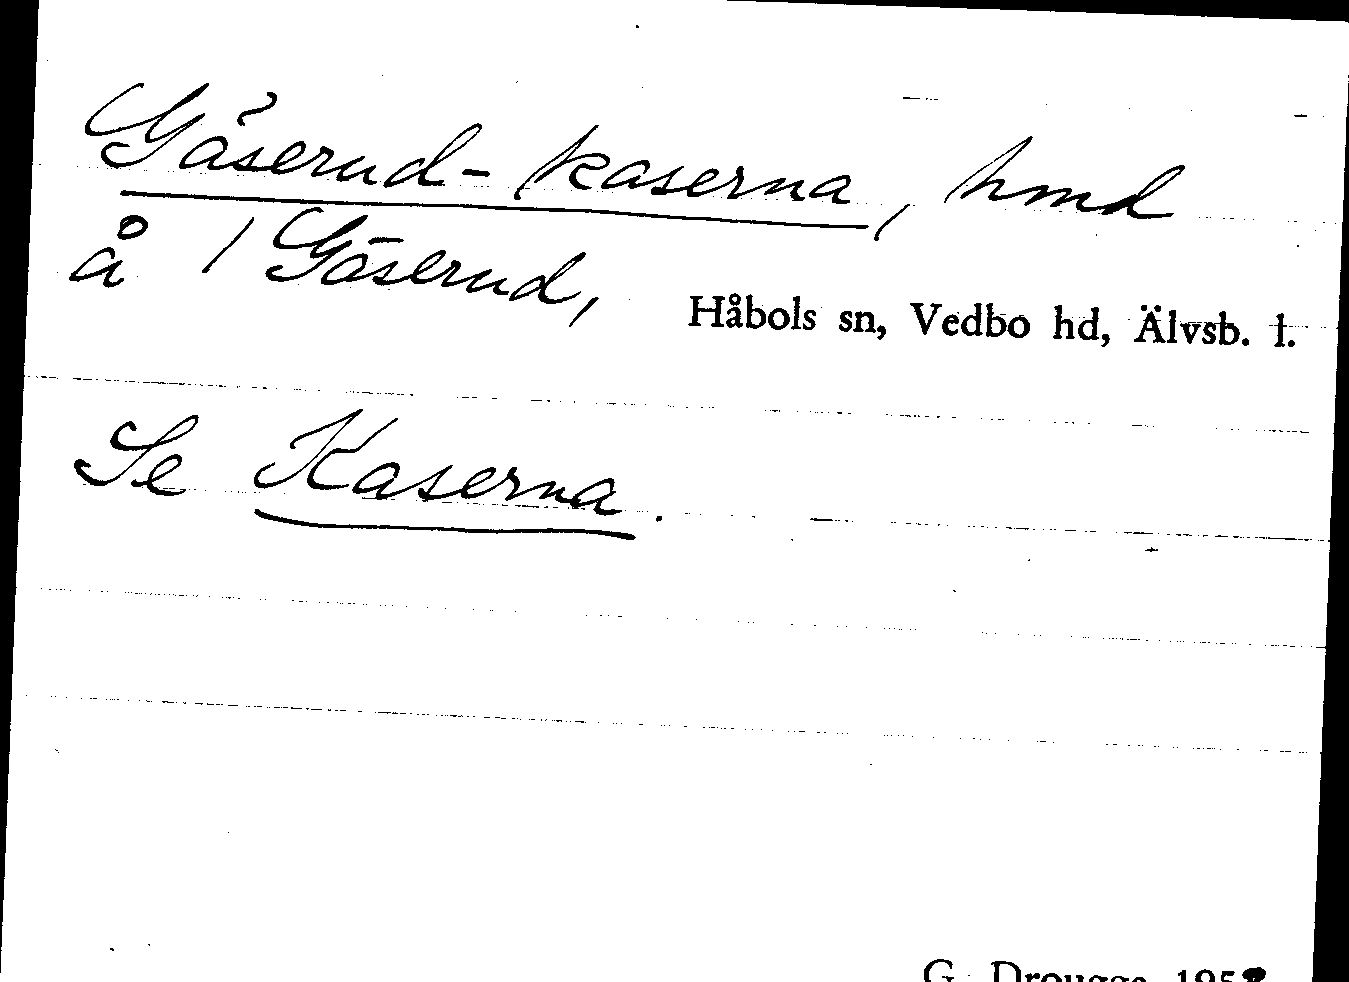 Gåserud-kaserna, hmd
å 1 Gåserud,
Håbols sn, Vedbo hd, Älvsb. l.
Se Kaserna.
G. Drougge